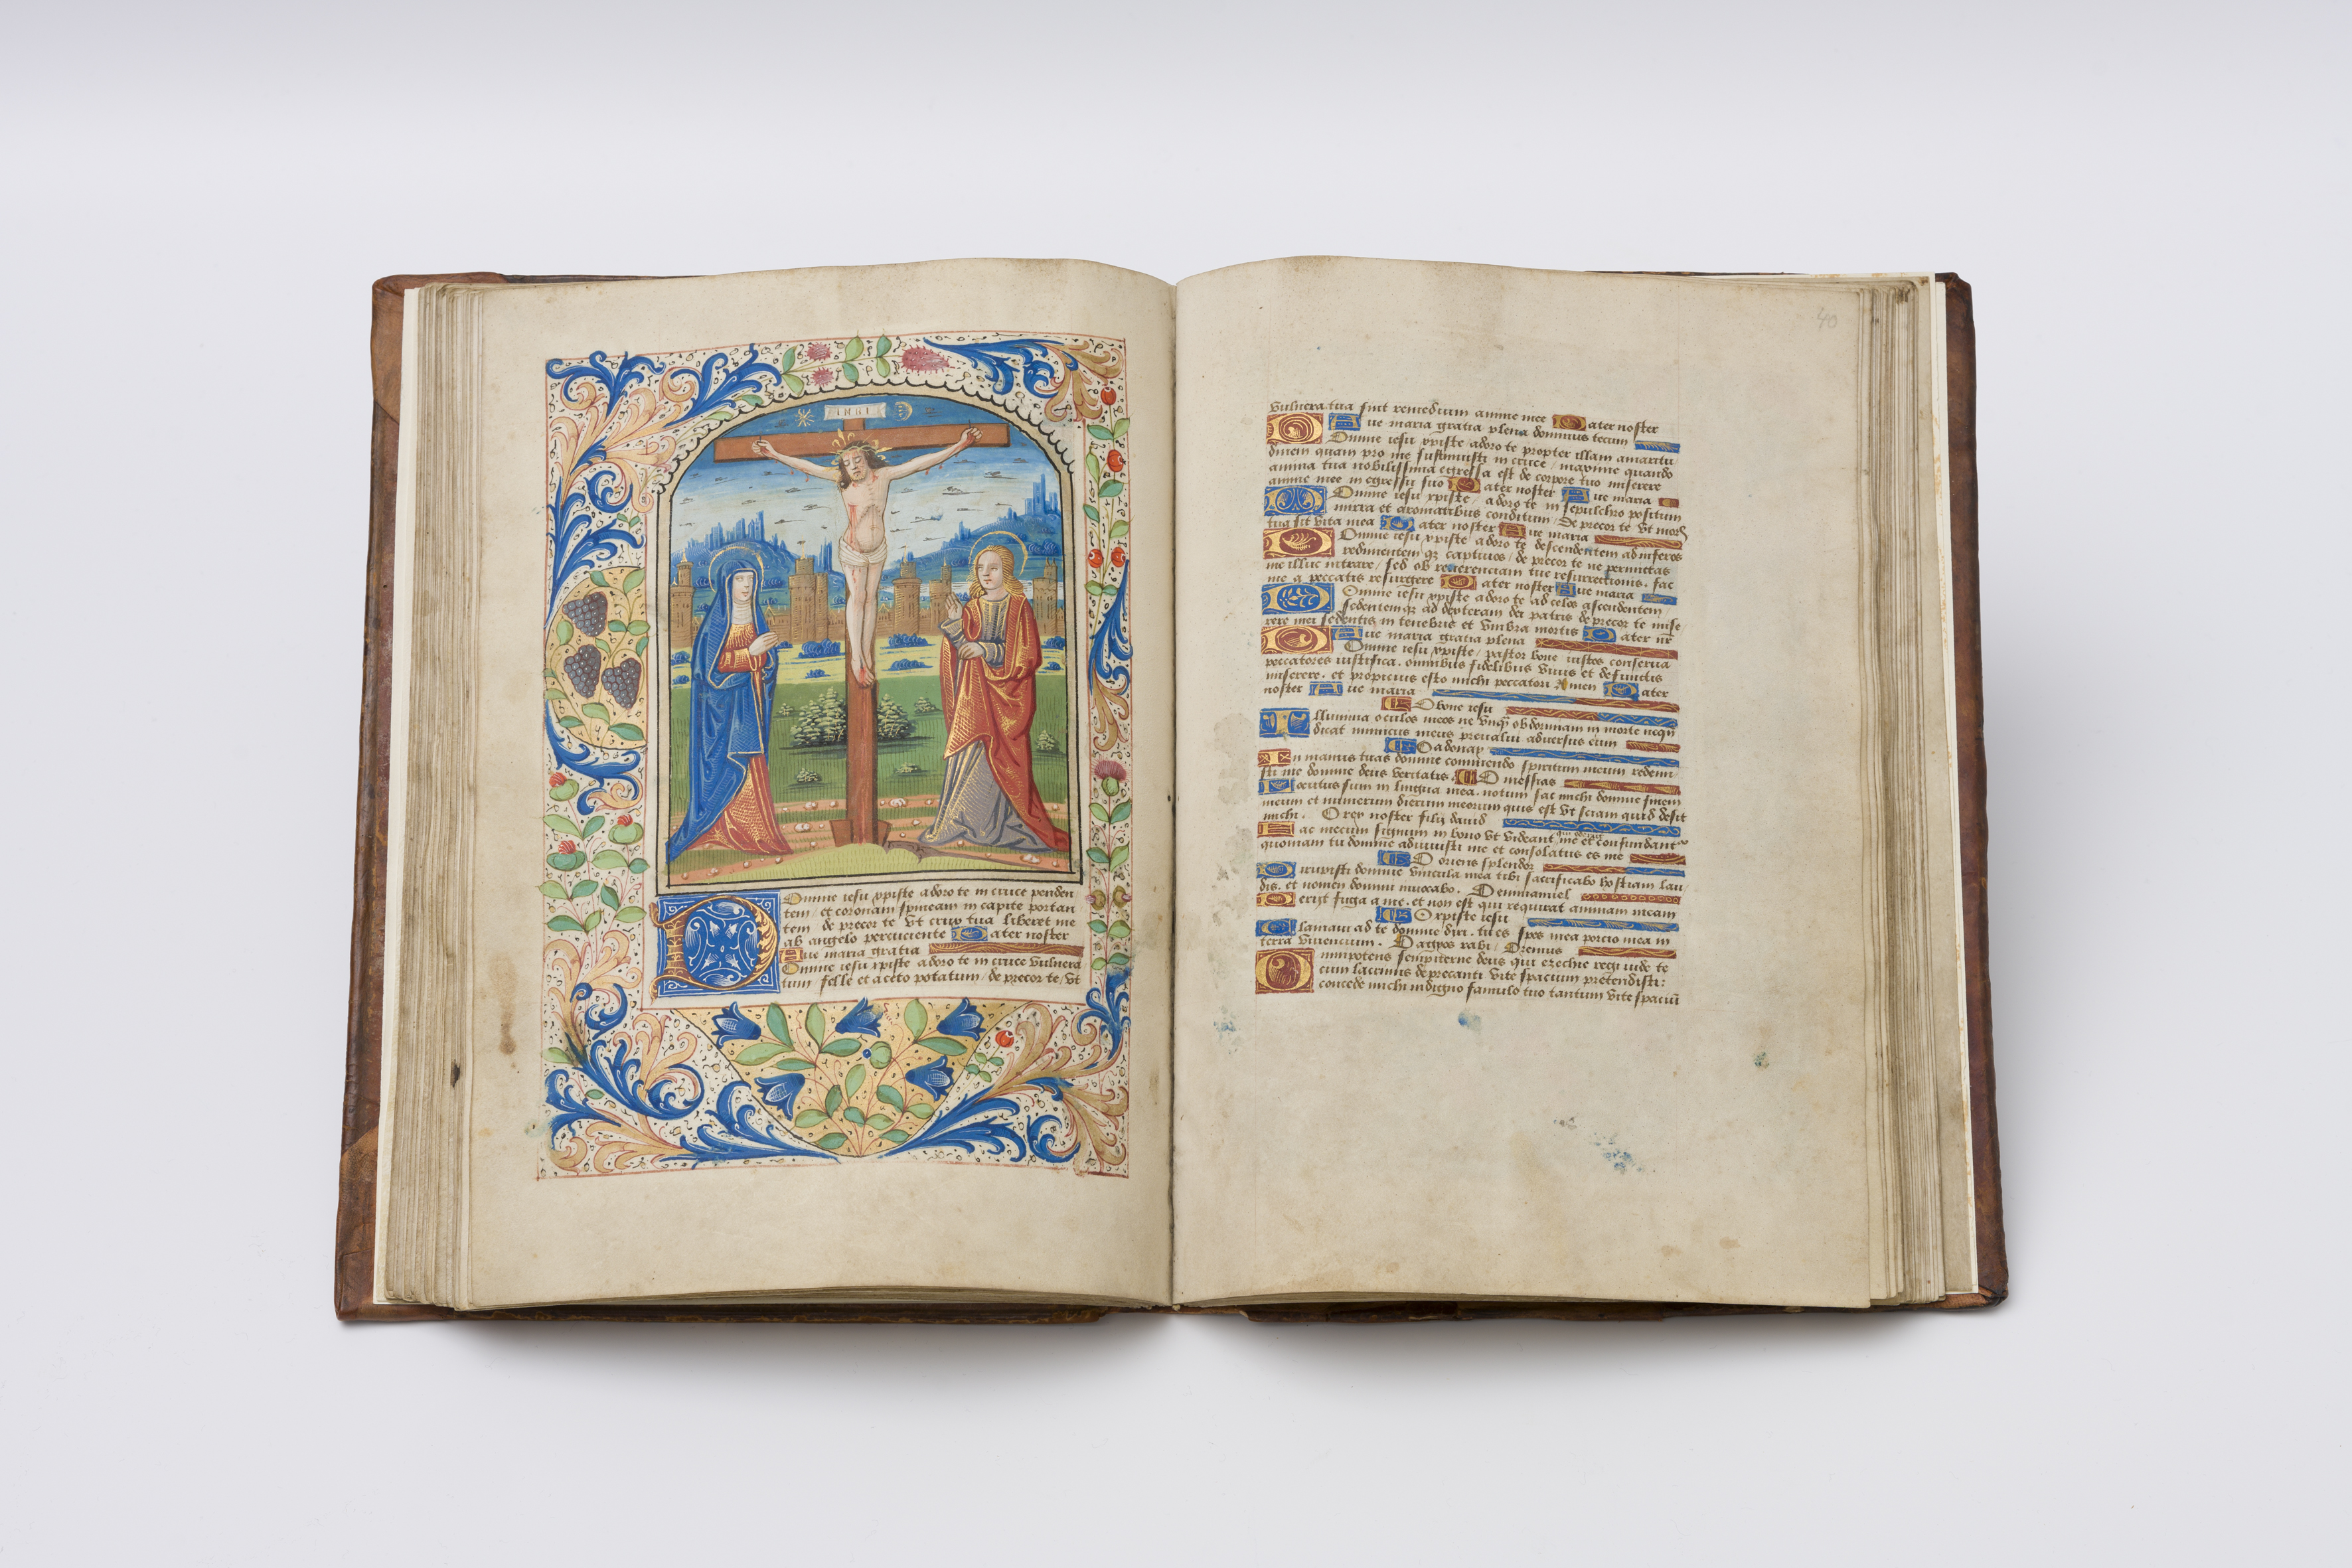 INRI
Domine iesu xpiste adoro te in cruce penden
tem / et coronam spineam in capite portan
tem de precor te vt crux tua liberet me
ab angelo percuciente Pater noster
Aue maria gratia
Domine iesu xpiste adoro te in cruce vulnera
tum / felle et aceto potatum / de precor te / vt
40
vulnera tua sint remedium anime mee Pater noster
Aue maria gratia plena dominus tecum
Domine iesu xpiste / adoro te propter illam amaritu
dinem quam pro me sustinuisti in cruce / maxime quando
anima tua nobilissima egressa est de corpore tuo miserere
anime mee in egressu suo Pater noster Aue maria
Domine iesu xpiste / adoro te in sepulchro positum
mirra et aromatibus conditum / de precor te vt mors
tua sit vita mea Pater noster Aue maria
Domine iesu xpiste adoro te descendentem ad inferos
redimentem qz captiuos / de precor te ne permittas
me illuc intrare / sed ob reuerenciam tue resurrectionis. fac
me a peccatis resurgere Pater noster Aue maria
Domine iesu xpiste adoro te ad celos ascendentem /
sedentemqz ad dexteram dei patris de precor te mise
rere mei sedentis in tenebris et vmbra mortis Pater nr
Aue maria gratia plena
Domine iesu xpiste / pastor bone iustos conserua
peccatores iustifica. omnibus fidelibus viuis et defunctis
miserere. et propicius esto michi peccatori Amen Pater
noster Aue maria
O bone iesu
Illumina oculos meos ne vnqz obdormiam in morte neqn
dicat inimicus meus preualui aduersus eum
O adonay
In manus tuas domine commendo spiritum meum redemi
sti me domine deus veritatis. O messias
Locutus sum in lingua mea. notum fac michi domine finem
meum et numerum dierum meorum quis est vt sciam quid desit
michi. O rex noster filij dauid
Fac mecum signum in bono vt videant qui oderunt me et confundantur
quoniam tu domine adiuuisti me et consolatus es me
O oriens splendor
Dirupisti domine vincula mea tibi sacrificabo hostiam lau
dis. et nomen domini inuocabo. O emmanuel
Periit fuga a me. et non est qui requirat animam meam
O xpiste iesu
Clamaui ad te domine dixi. tu es spes mea porcio mea in
terra viuencium. O agyos rabi / Oremus
Omnipotens sempiterne deus qui ezechie regi iude te
cum lacrimis deprecanti vite spacium pretendisti:
concede michi indigno famulo tuo tantum vite spaciū